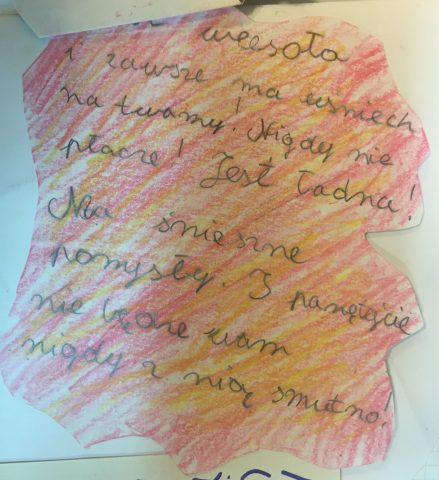 weesoła
i zawsze ma uśmiech
na twarzy! Nigdy nie
płacze! Jest ładna!
Ma śnieszne
pomysły. I pamętejcie
nie będze wam
nigdy z nią smutno!